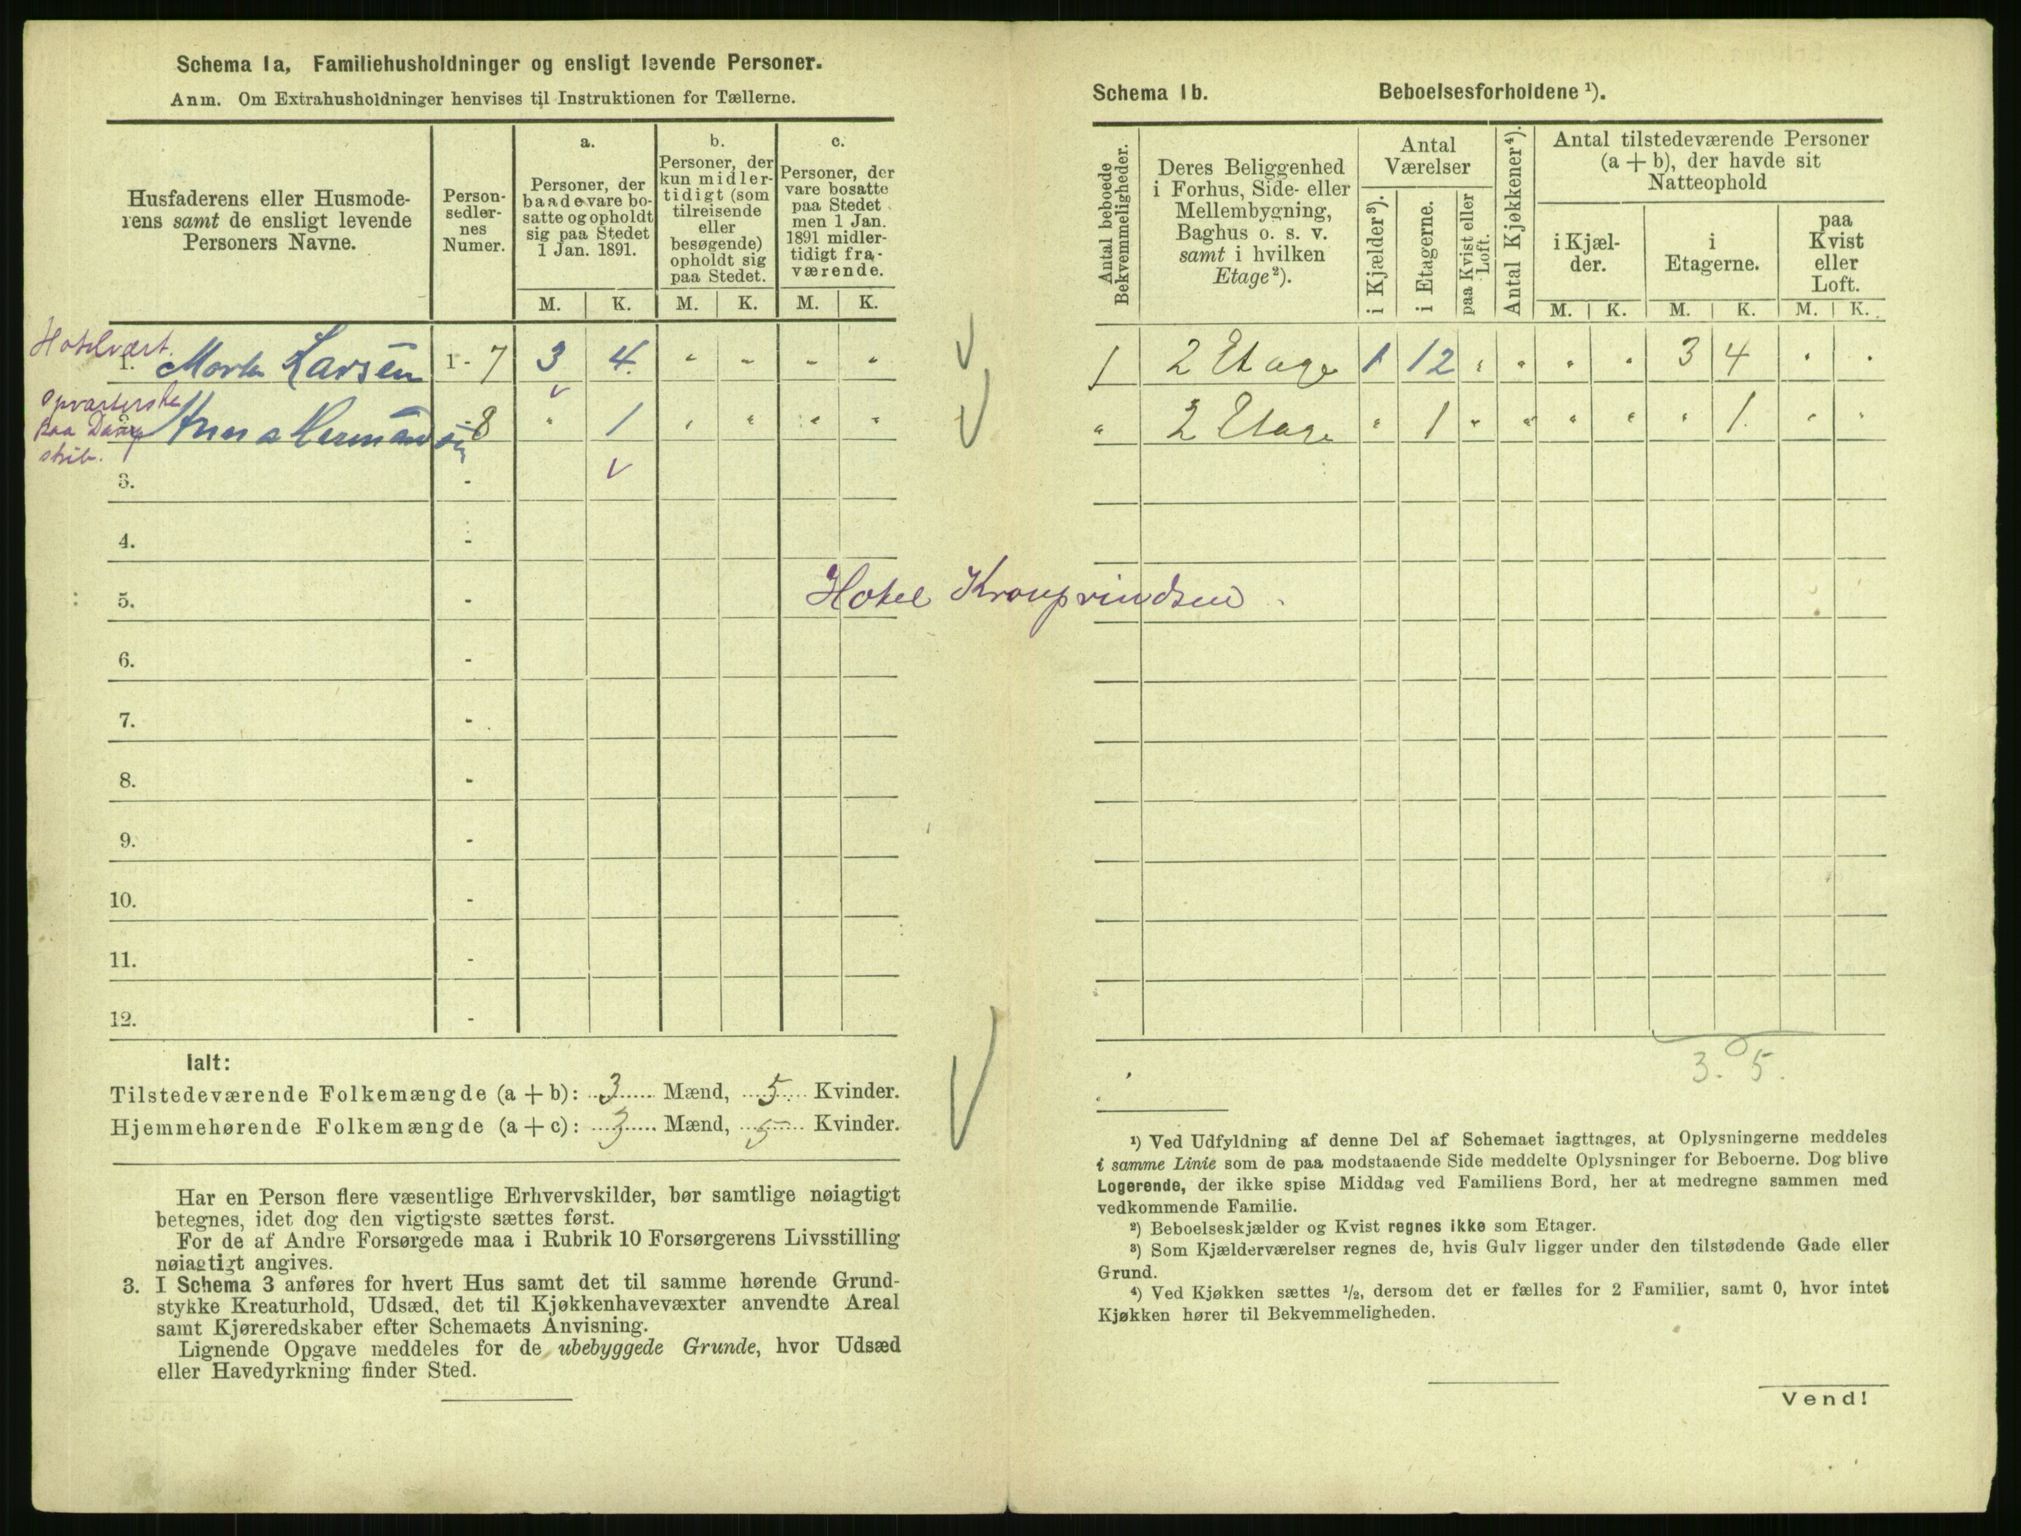 Schema 1a, Familiehusholdninger og ensligt levende Personer.
Anm. Om Extrahusholdninger henvises til Instruktionen for Tællerne.
Husfaderens eller Husmode-
rens samt de ensligt levende
Personers Navne.
Person-
sedler-
nes
Numer.
a.
Personer, der
baade vare bo-
satte og opholdt
sig paa Stedet
1 Jan. 1891.
b.
Personer, der
kun midler-
tidigt (som
tilreisende
eller
besøgende)
opholdt sig
paa Stedet.
c.
Personer, der
vare bosatte
paa Stedet
men 1 Jan.
1891 midler-
tidigt fra-
værende.
M. K. M. K. M. K.
Hotelvært.
1. Morten Larsen 1 - 7 3 4. " " " "
Opvarterske
paa
skib.
2. Anna Hermansen - 8 " 1 " " " "
3. -
4. -
5. -
6. -
7. -
8. -
9. -
10. -
11. -
12. -
Ialt:
Tilstedeværende Folkemængde (a + b): 3 Mænd, 5 Kvinder.
Hjemmehørende Folkemængde (a + c): 3 Mænd, 5 Kvinder.
Har en Person flere væsentlige Erhvervskilder, bør samtlige nøiagtigt
betegnes, idet dog den vigtigste sættes først.
For de af Andre Forsørgede maa i Rubrik 10 Forsørgerens Livsstilling
nøiagtigt angives.
3. I Schema 3 anføres for hvert Hus samt det til samme hørende Grund-
stykke Kreaturhold, Udsæd, det til Kjøkkenhavevæxter anvendte Areal
samt Kjøreredskaber efter Schemaets Anvisning.
Lignende Opgave meddeles for de ubebyggede Grunde, hvor Udsæd
eller Havedyrkning finder Sted.
Hotel Kronprindsen.
Schema 1b. Beboelsesforholdene ¹).
Antal beboede
Bekvemmeligheder.
Deres Beliggenhed
i Forhus, Side- eller
Mellembygning,
Baghus o. s. v.
samt i hvilken
Etage²).
Antal
Værelser
i Kjælder³).
i Etagerne.
paa Kvist eller
Loft.
Antal Kjøkkener⁴).
Antal tilstedeværende Personer
(a + b), der havde sit
Natteophold
i Kjæl-
der.
i
Etagerne.
paa
Kvist
eller
Loft.
M. K. M. K. M. K.
1 2 Etage 1 12 " " " " 3 4 " "
" 2 Etage " 1 " " " " " 1. " "
3. 5.
¹) Ved Udfyldning af denne Del af Schemaet iagttages, at Oplysningerne meddeles
i samme Linie som de paa modstaaende Side meddelte Oplysninger for Beboerne. Dog blive
Logerende, der ikke spise Middag ved Familiens Bord, her at medregne sammen med
vedkommende Familie.
²) Beboelseskjælder og Kvist regnes ikke som Etager.
³) Som Kjælderværelser regnes de, hvis Gulv ligger under den tilstødende Gade eller
Grund.
⁴) Ved Kjøkken sættes ½, dersom det er fælles for 2 Familier, samt 0, hvor intet
Kjøkken hører til Bekvemmeligheden.
Vend!